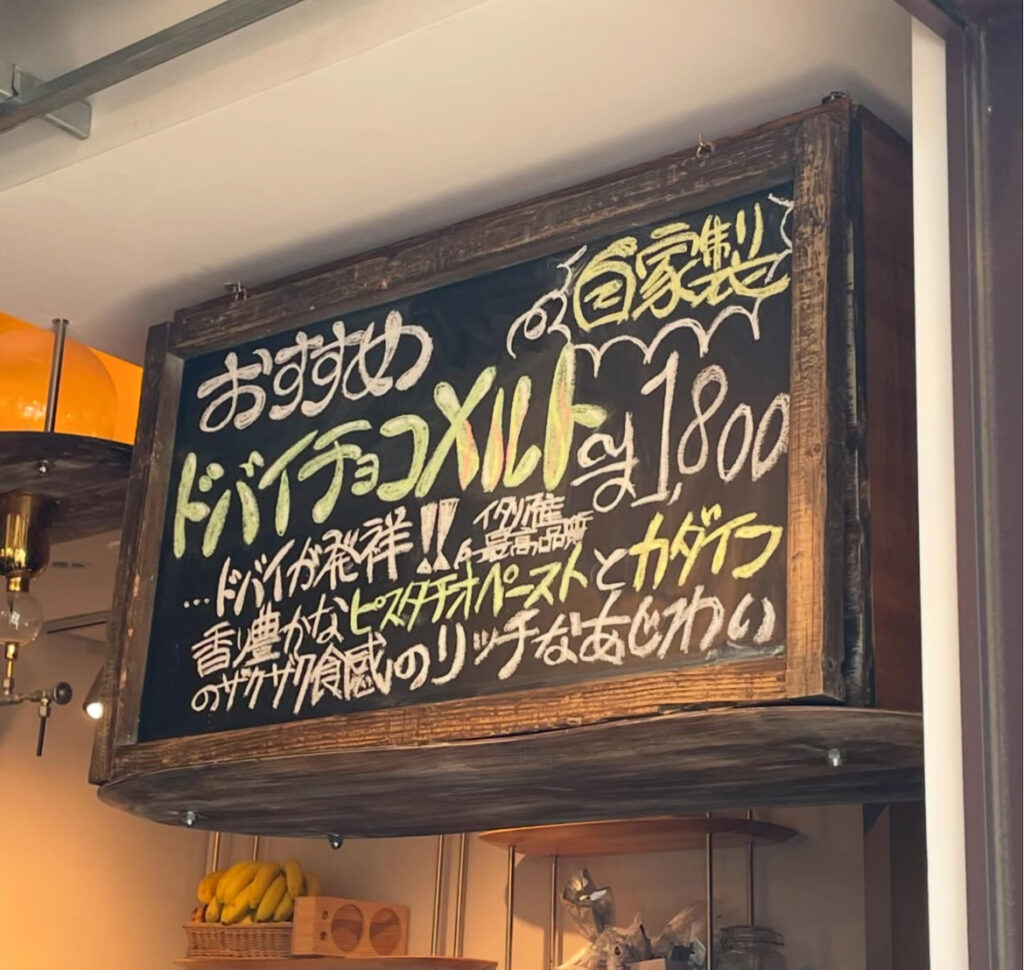 自家製
おすすめ
ドバイチョコメルト ¥1,800
…ドバイが発祥!! イタリア産
最高品質
香り豊かなピスタチオペーストとカダイフ
のザクザク食感のリッチなあじわい